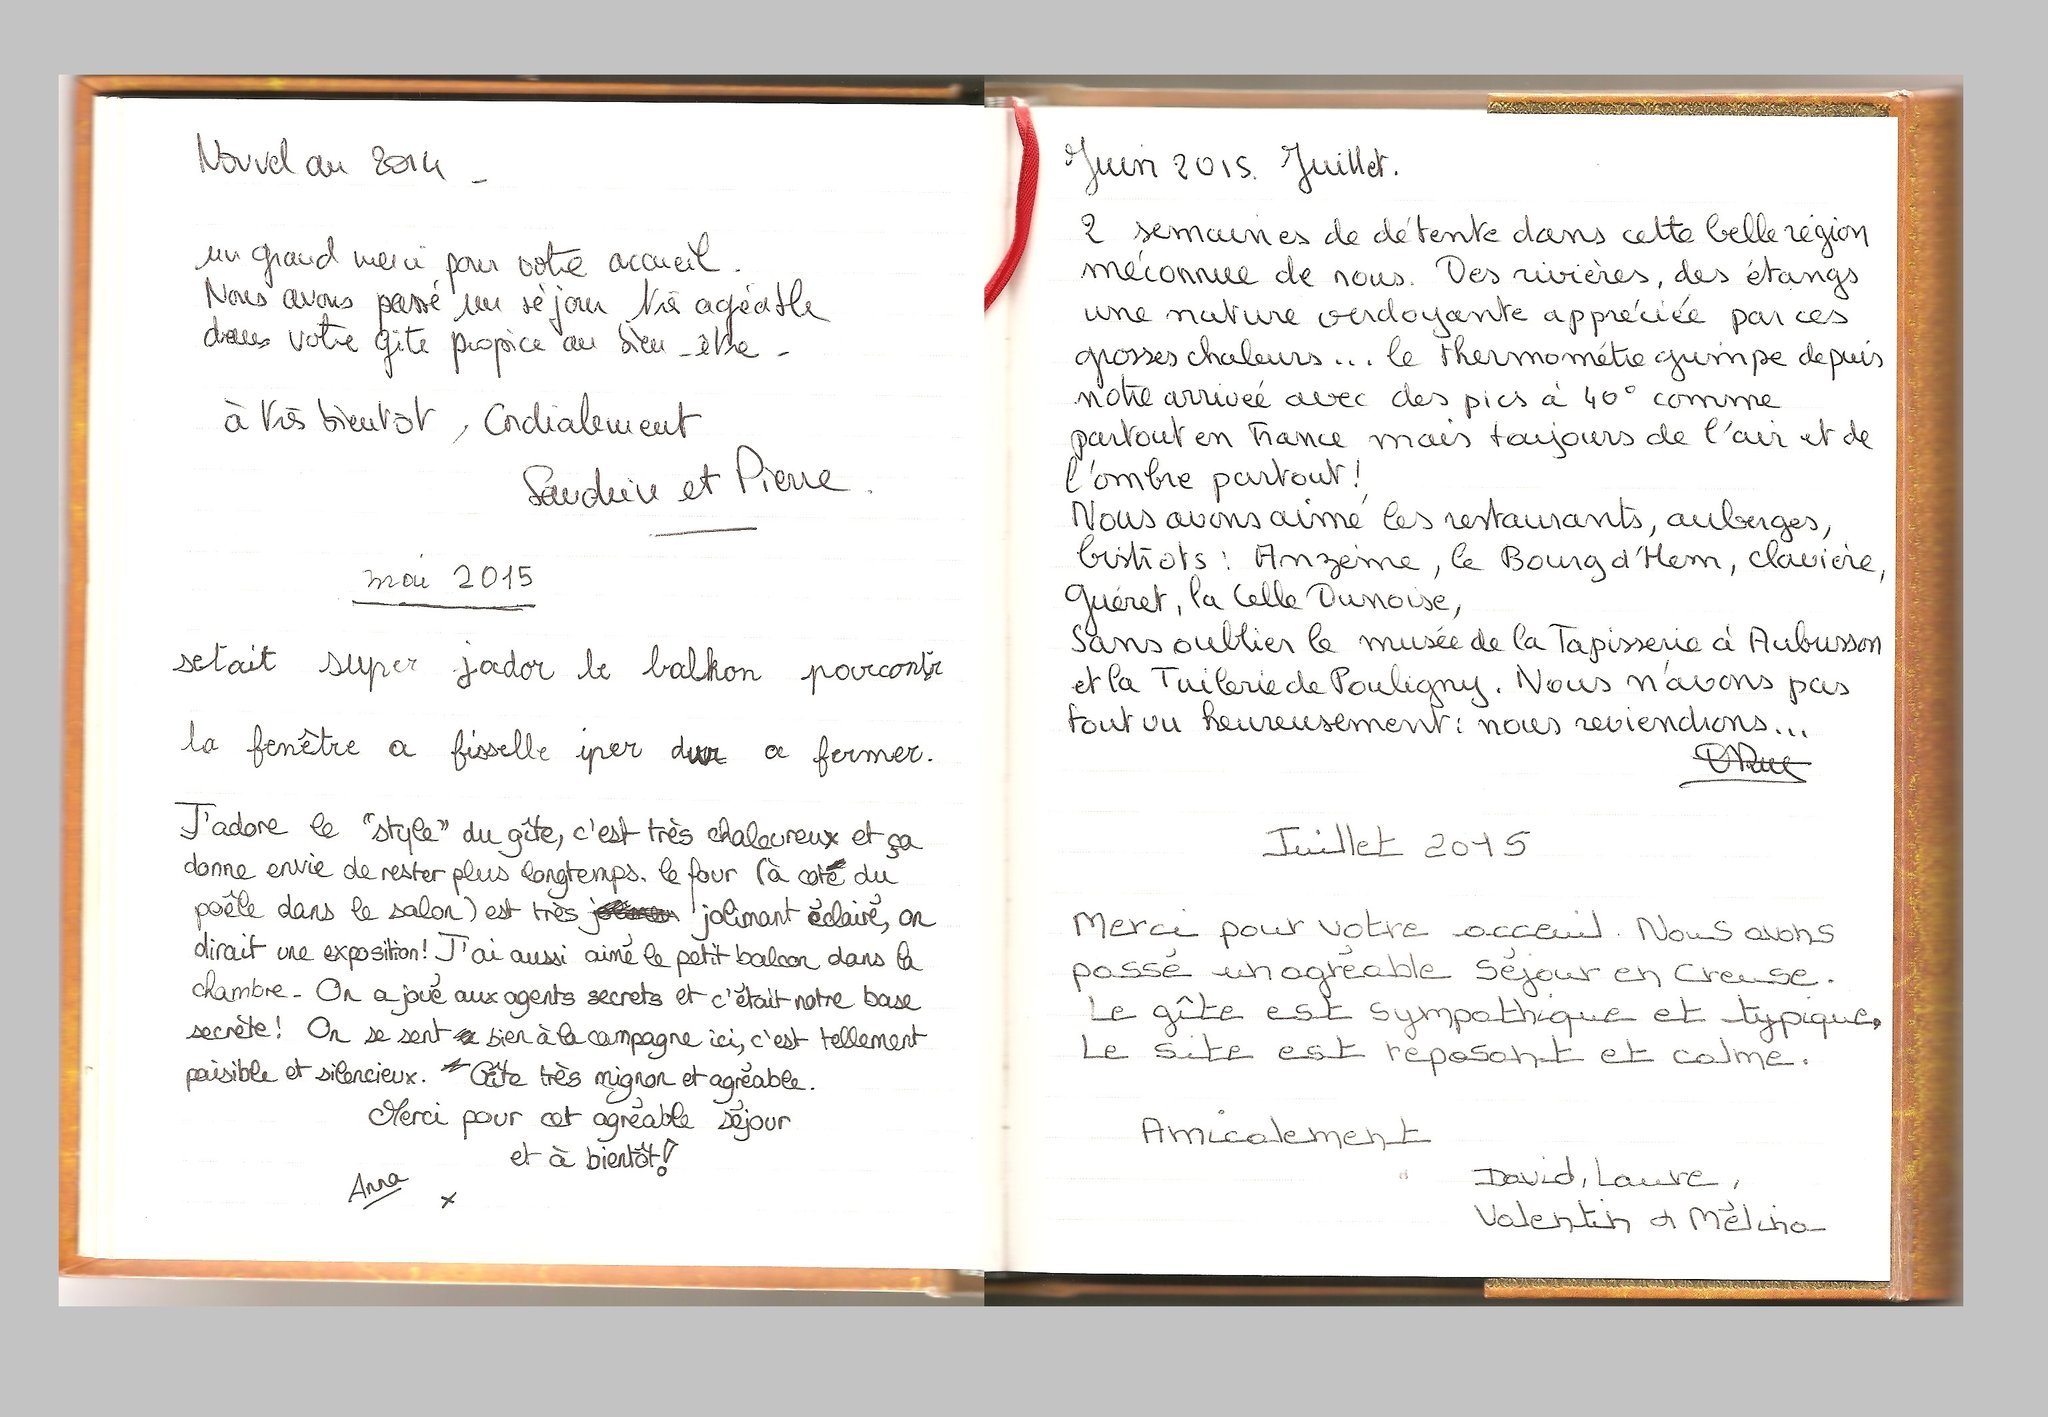 Nouvel an 2014 -
un grand merci pour votre accueil.
Nous avons passé un séjour très agréable
dans votre gîte propice au bien-être -
à très bientôt, Cordialement
Sandrine et Pierre.
mai 2015
setait super jador le balkon pourcontr
la fenêtre a fisselle iper dur a fermer.
J'adore le "style" du gîte, c'est très chaleureux et ça
donne envie de rester plus longtemps. le four (à coté du
poêle dans le salon) est très jolimant éclairé, on
dirait une exposition! J'ai aussi aimé le petit balcon dans la
chambre - On a joué aux agents secrets et c'était notre base
secrète! On se sent bien à la campagne ici, c'est tellement
paisible et silencieux. Gîte très mignon et agréable.
Merci pour cet agréable séjour
et à bientôt!
Anna x
Juin 2015. Juillet.
2 semaines de détente dans cette belle région
méconnue de nous. Des rivières, des étangs
une nature verdoyante appréciée par ces
grosses chaleurs... le thermomètre grimpe depuis
notre arrivée avec des pics à 40° comme
partout en France mais toujours de l'air et de
l'ombre partout!
Nous avons aimé les restaurants, auberges,
bistrots : Anzème, le Bourg d'Hem, clavière,
Guéret, la Celle Dunoise,
Sans oublier le musée de la Tapisserie à Aubusson
et la Tuilerie de Pouligny. Nous n'avons pas
tout vu heureusement : nous reviendrons...
Juillet 2015
Merci pour votre acceuil. Nous avons
passé un agréable séjour en Creuse.
Le gîte est sympathique et typique.
Le site est reposant et calme.
Amicalement
David, Laure,
Valentin et Mélina